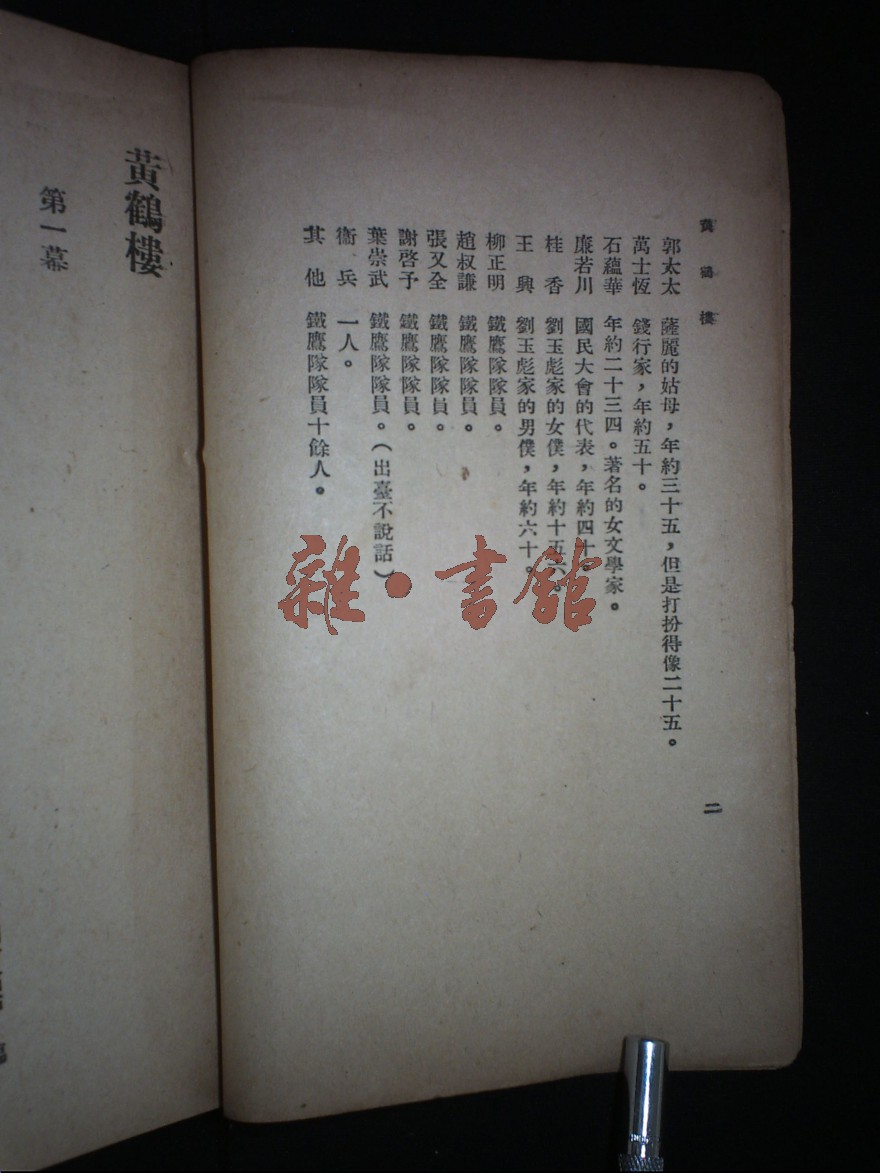 黃鶴樓
二
郭太太 薩麗的姑母，年約三十五，但是打扮得像二十五。
萬士恆 錢行家，年約五十。
石蘊華 年約二十三四。著名的女文學家。
廉若川 國民大會的代表，年約四十。
桂香 劉玉彪家的女僕，年約十五六。
王興 劉玉彪家的男僕，年約六十。
柳正明 鐵鷹隊隊員。
趙叔謙 鐵鷹隊隊員。
張又全 鐵鷹隊隊員。
謝啓予 鐵鷹隊隊員。
葉崇武 鐵鷹隊隊員。（出臺不說話）
衞兵 一人。
其他 鐵鷹隊隊員十餘人。
雜·書館
黃鶴樓
第一幕